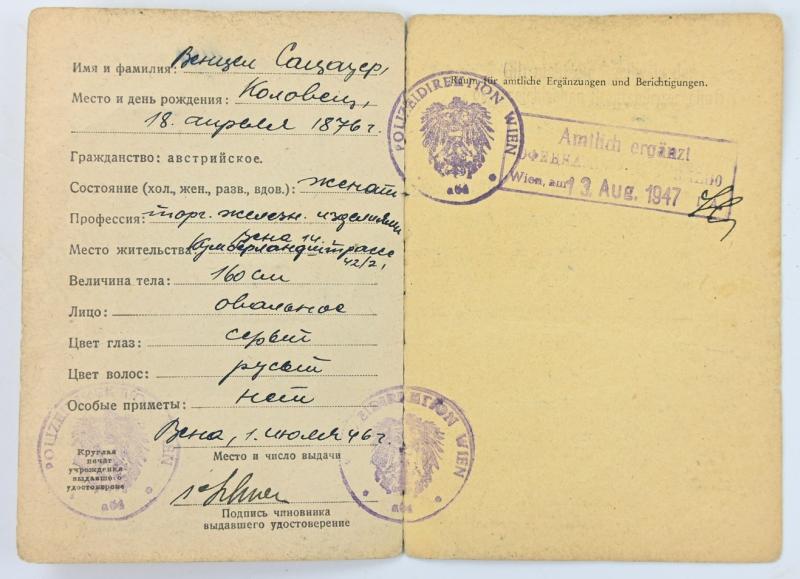 Имя и фамилия: Венцел
Место и день рождения: Коловец,
18. апреля 1876 г.
Гражданство: австрийское.
Состояние (хол., жен., разв., вдов.): женат
Профессия: торг. железн. изделиями
Вена 14.
Место жительства: Кумберландштрассе
42/2,
Величина тела: 160 см
Лицо: овальное
Цвет глаз: серый
Цвет волос: русый
Особые приметы: нет
Вена, 1. июля 46 г.
Место и число выдачи
Круглая
печат
учреждения
выдавшего
удостоверене
Подпись чиновника
выдавшего удостоверение
POLIZEIDIREKTION WIEN
a64
Raum für amtliche Ergänzungen und Berichtigungen.
POLIZEIDIREKTION WIEN
a64
Amtlich ergänzt
Wien, am 13 Aug. 1947
WIEN
a64